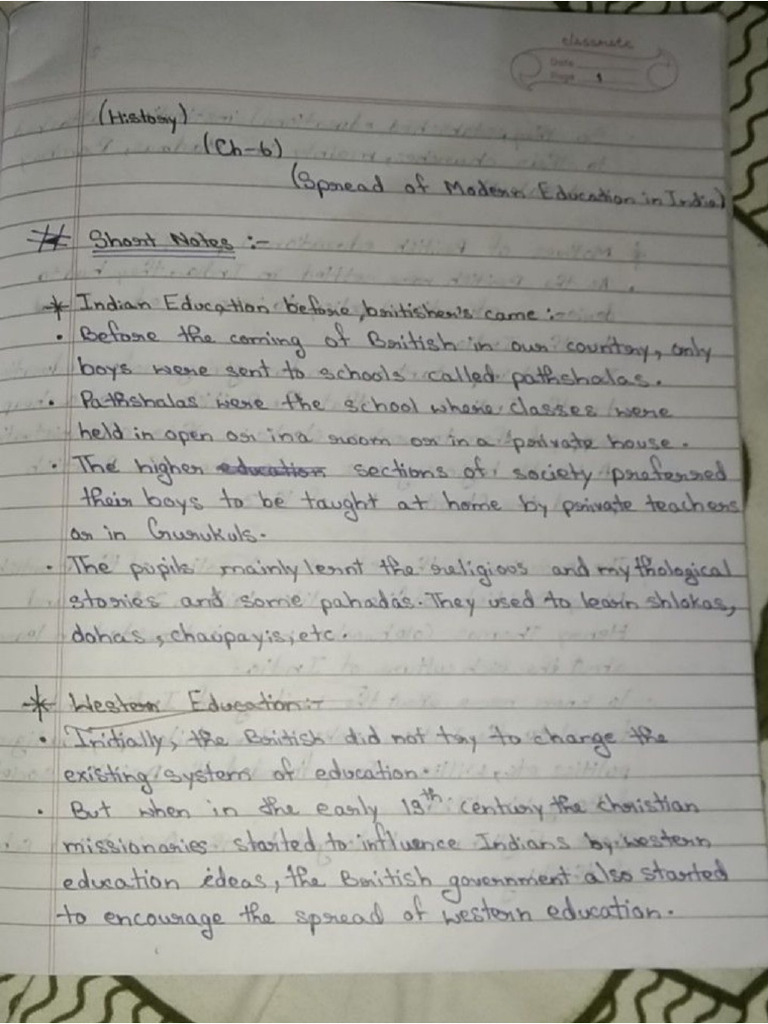 classmate
Date
Page 1
(History)
(Ch-6)
(Spread of Modern Education in India)
# Short Notes :-
* Indian Education before britisher's came :-
• Before the coming of British in our country, only
boys were sent to schools called pathshalas.
• Pathshalas were the school where classes were
held in open or in a room or in a private house.
• The higher education sections of society preferred
their boys to be taught at home by private teachers
or in Gurukuls.
• The pupils mainly lernt the religios and mythological
stories and some pahadas. They used to learn shlokas,
dohas, chaupayis, etc.
* Western Education:-
• Initially, the British did not try to change the
existing system of education.
• But when in the early 19th century the christian
missionaries started to influence Indians by western
education ideas, the British government also started
to encourage the spread of western education.